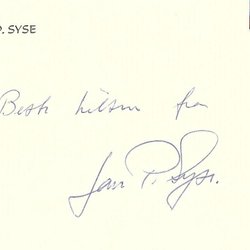 P. SYSE
Beste hilsen fra
Jan P. Syse.